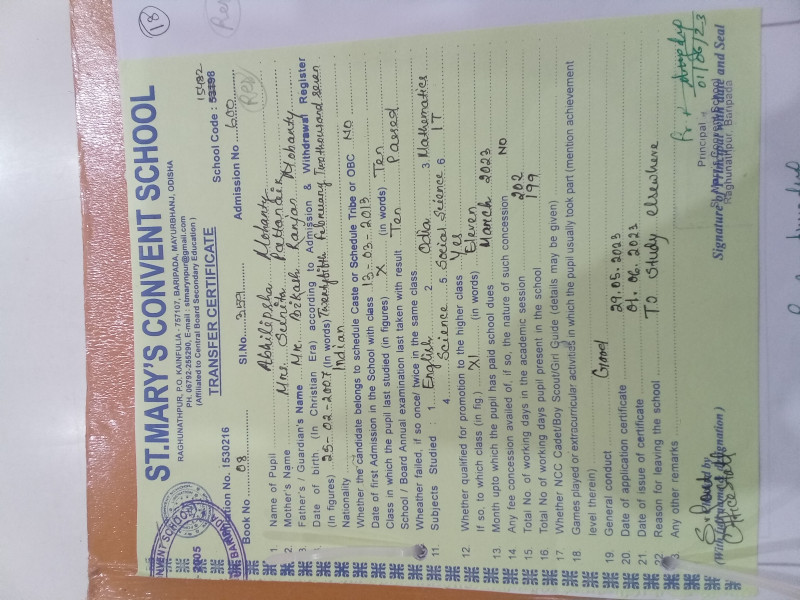 18
Rev
ST.MARY'S CONVENT SCHOOL
RAGHUNATHPUR, P.O. KAINFULIA - 757107, BARIPADA, MAYURBHANJ, ODISHA
PH. 06792-255290, E-mail : stmarynpur@gmail.com
(Affiliated to Central Board Secondary Education)
TRANSFER CERTIFICATE
Affiliation No. 1530216 School Code : 15482
Book No 08 Sl.No. 399 Admission No. 600
Rev
1. Name of Pupil Abhilipsha Mohanty
2. Mother's Name Mrs. Sunita Pattanaik
3. Father's / Guardian's Name Mr. Bikash Ranjan Mohanty
Date of birth (In Christian Era) according to Admission & Withdrawal Register
(In figures) 25-02-2007 (In words) Twentyfifth February Two thousand seven
Nationality Indian
Whether the candidate belongs to schedule Caste or Schedule Tribe or OBC NO
Date of first Admission in the School with class 13-03-2013
Class in which the pupil last studied (in figures) X (in words) Ten
School / Board Annual examination last taken with result Ten Passed
Wheather failed, if so once/ twice in the same class
11. Subjects Studied : 1. English 2. Odia 3. Mathematics
4. Science 5. Social Science 6 IT
12. Whether qualified for promotion to the higher class Yes
If so, to which class (in fig.) XI (in words) Eleven
13 Month upto which the pupil has paid school dues March 2023
14. Any fee concession availed of, if so, the nature of such concession NO
15 Total No. of working days in the academic session 202
16. Total No. of working days pupil present in the school 199
17 Whether NCC Cadet/Boy Scout/Girl Guide (details may be given)
18 Games played or extracurricular activities in which the pupil usually took part (mention achievement
level therein)
19. General conduct Good
20. Date of application certificate 29.05.2023
21. Date of issue of certificate 01.06.2023
22 Reason for leaving the school To study elsewhere
3. Any other remarks
01/06/23
Principal
Raghunathpur, Baripada
Signature of Principal with date and Seal
Office Staff